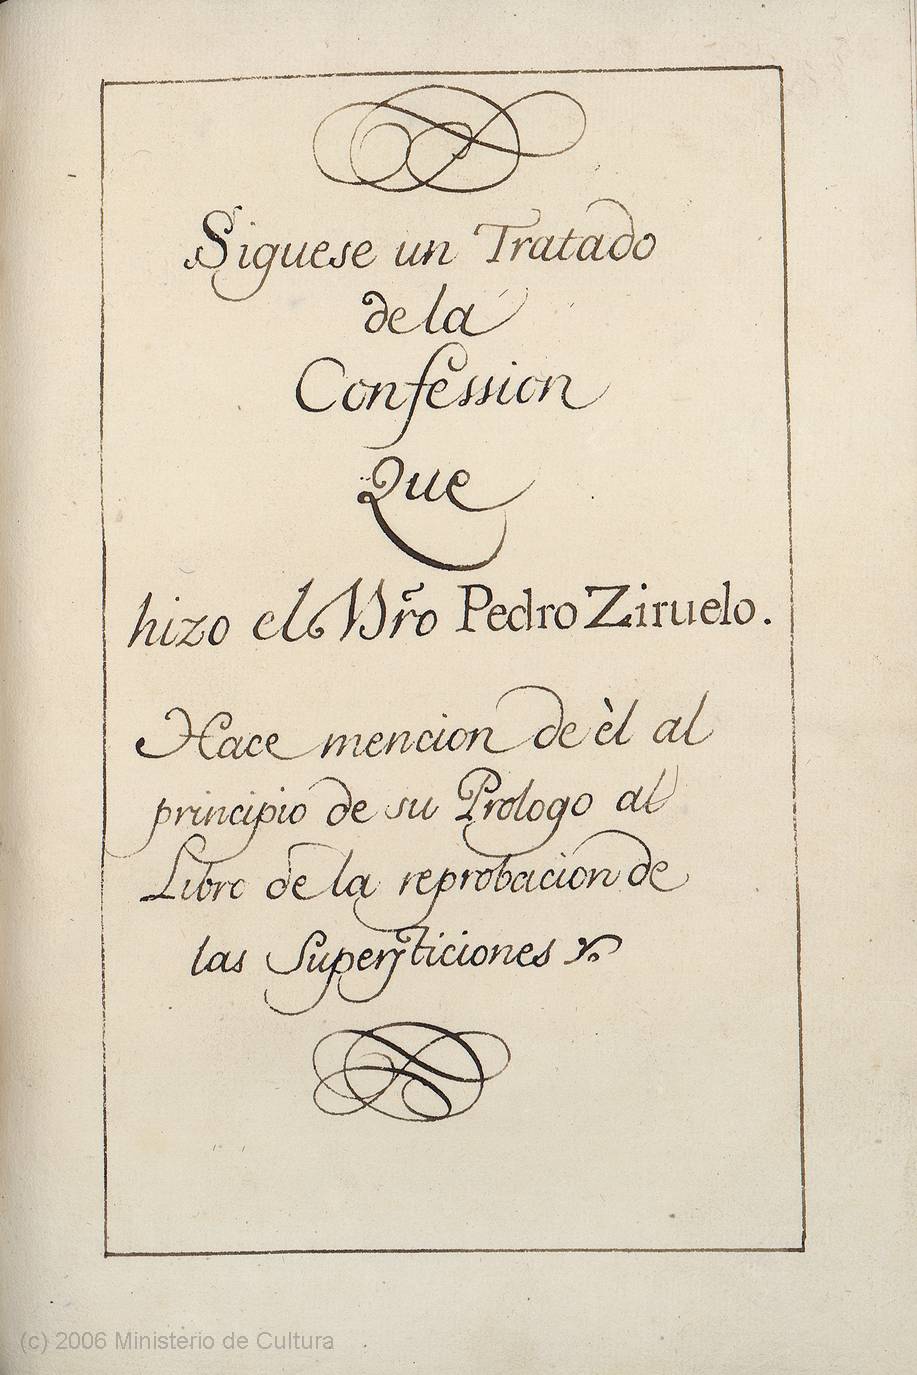 Siguese un Tratado
de la
Confession
Que
hizo el Mr̃o Pedro Ziruelo.
Hace mencion de èl al
principio de su Prologo al
Libro de la reprobacion de
las Supersticiones
(c) 2006 Ministerio de Cultura